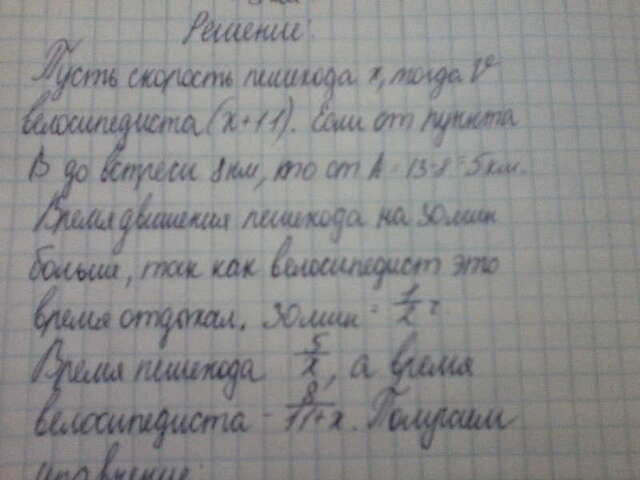 Решение:
Пусть скорость пешехода x, тогда V
велосипедиста (x+11). Если от пункта
В до встречи 8 км, то от А - 13-8=5 км.
Время движения пешехода на 30 мин
больше, так как велосипедист это
время отдыхал. 30 мин = 1/2 ч
Время пешехода 5/x, а время
велосипедиста - 8/11+x. Получаем
уравнение: